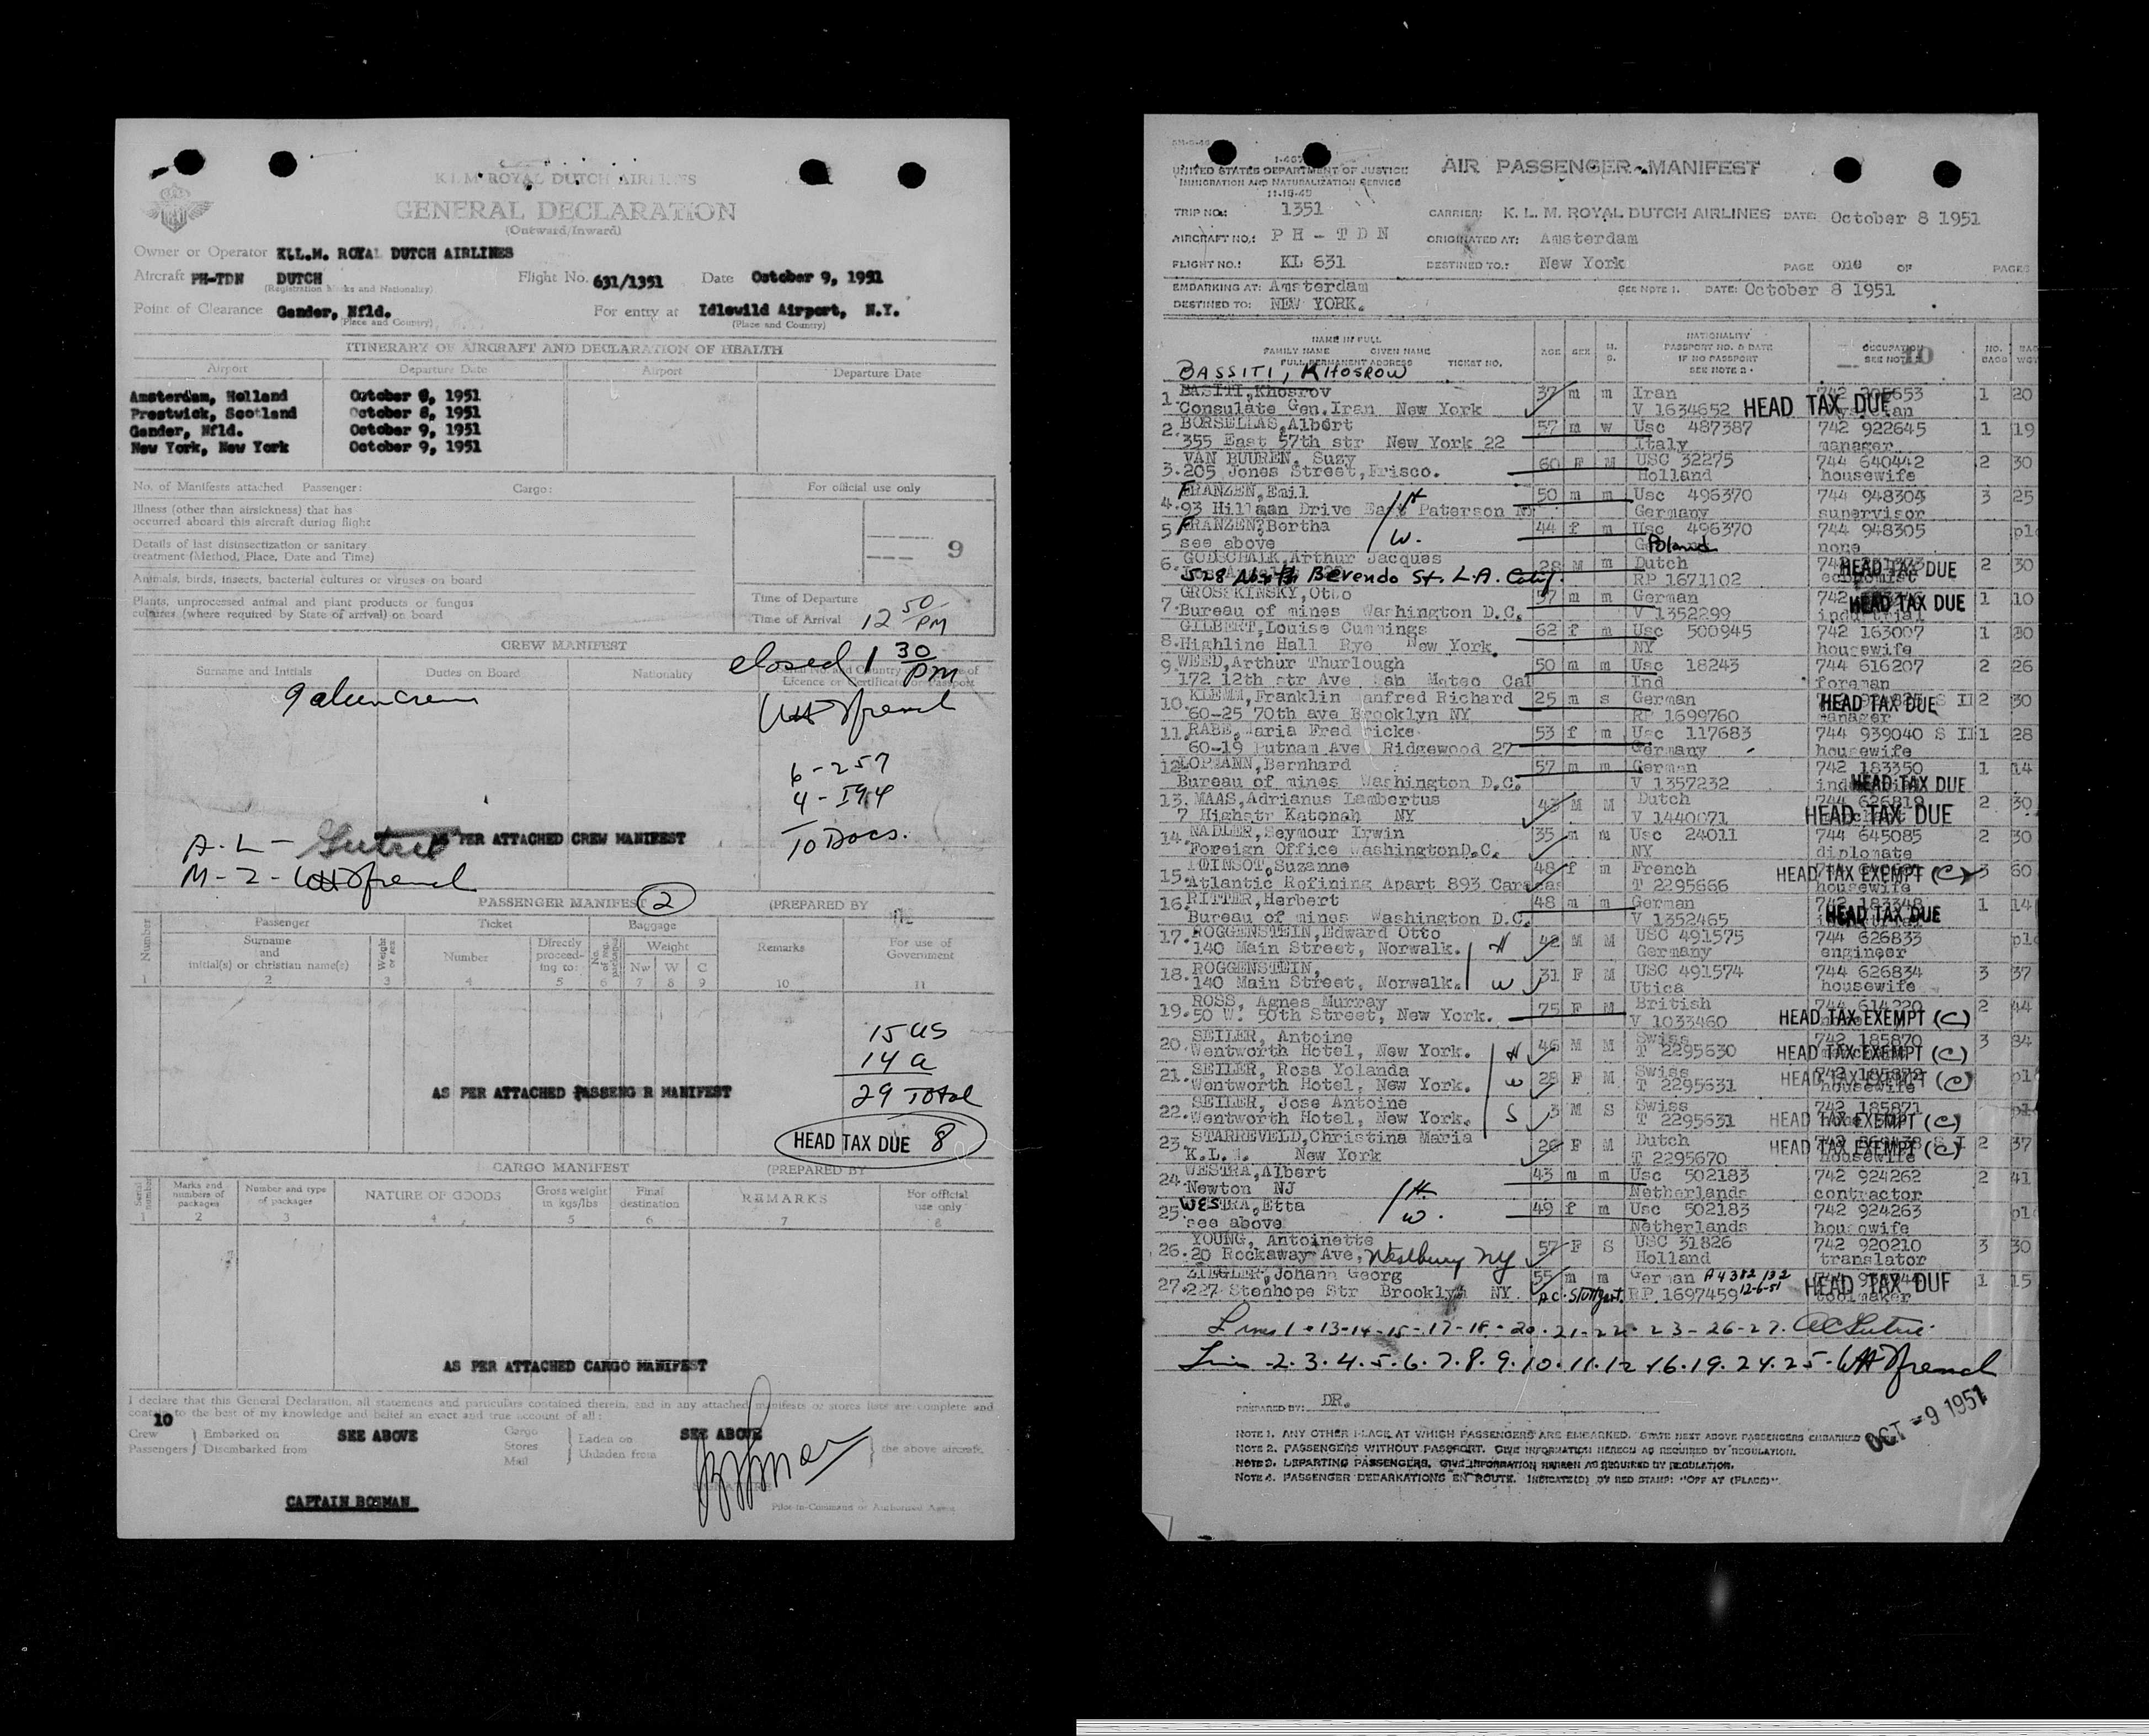 K.L.M. ROYAL DUTCH AIRLINES
GENERAL DECLARATION
(Outward/Inward)
Owner or Operator KLL.M. ROYAL DUTCH AIRLINES
Aircraft PH-TDN DUTCH Flight No. 631/1351 Date October 9, 1951
(Registration Marks and Nationality)
Point of Clearance Gander, Nfld. For entry at Idlewild Airport, N.Y.
(Place and Country) (Place and Country)
ITINERARY OF AIRCRAFT AND DECLARATION OF HEALTH
Airport Departure Date Airport Departure Date
Amsterdam, Holland October 8, 1951
Prestwick, Scotland October 8, 1951
Gander, Nfld. October 9, 1951
New York, New York October 9, 1951
No. of Manifests attached Passenger: Cargo: For official use only
Illness (other than airsickness) that has
occurred aboard this aircraft during flight
Details of last disinsectization or sanitary
treatment (Method, Place, Date and Time)
9
Animals, birds, insects, bacterial cultures or viruses on board
Plants, unprocessed animal and plant products or fungus
cultures (where required by State of arrival) on board
Time of Departure
Time of Arrival 12 50 PM
CREW MANIFEST
closed 1 30 PM
Surname and Initials Duties on Board Nationality
Licence or Certificate or Passport
9 alien crew
6-257
4-I94
10 Docs.
AS PER ATTACHED CREW MANIFEST
A-L- Gutrie
M-2- WH French
PASSENGER MANIFEST 2 (PREPARED BY
Number Passenger Ticket Baggage
Surname and initial(s) or christian name(s) Weight or sex Number Directly proceeding to: No. of packages Weight Remarks For use of Government
Nw W C
1 2 3 4 5 6 7 8 9 10 11
15 US
14 A
29 Total
AS PER ATTACHED PASSENG R MANIFEST
HEAD TAX DUE 8
CARGO MANIFEST (PREPARED BY
Serial number Marks and numbers of packages Number and type of packages NATURE OF GOODS Gross weight in kgs/lbs Final destination REMARKS For official use only
1 2 3 4 5 6 7 8
AS PER ATTACHED CARGO MANIFEST
I declare that this General Declaration, all statements and particulars contained therein, and in any attached manifests or stores lists are complete and
contain to the best of my knowledge and belief an exact and true account of all:
10
Crew Embarked on SEE ABOVE Cargo Laden on SEE ABOVE
Passengers Disembarked from Stores Unladen from the above aircraft.
Mail
SIGNATURE
CAPTAIN BOSMAN
Pilot-in-Command or Authorized Agent
UNITED STATES DEPARTMENT OF JUSTICE
IMMIGRATION AND NATURALIZATION SERVICE
11-15-45
AIR PASSENGER MANIFEST
TRIP NO.: 1351 CARRIER: K. L. M. ROYAL DUTCH AIRLINES DATE: October 8 1951
AIRCRAFT NO.: PH - TDN ORIGINATED AT: Amsterdam
FLIGHT NO.: KL 631 DESTINED TO.: New York PAGE one OF PAGES
EMBARKING AT: Amsterdam SEE NOTE 1. DATE: October 8 1951
DESTINED TO: NEW YORK.
NAME IN FULL
FAMILY NAME GIVEN NAME
FULL PERMANENT ADDRESS TICKET NO.
AGE SEX M. S. NATIONALITY PASSPORT NO. & DATE IF NO PASSPORT SEE NOTE 2. OCCUPATION SEE NOTE 10 NO. BAGG
BASSITI, KHOSROW
1. BASITI,Khosrov 37 m m Iran 1 20
Consulate Gen.Iran New York V 1634652 HEAD TAX DUE
2. BORSELLAS,Albert 57 m w Usc 487387 742 922645 1 19
355 East 57th str New York 22 Italy manager
3. VAN BUUREN, Suzy 60 F M USC 32275 744 640442 2 30
205 Jones Street,Frisco. Holland housewife
4. FRANZEN,Emil 50 m m Usc 496370 744 948304 3 25
93 Hillman Drive East Paterson NJ H Germany supervisor
5 FRANZEN,Bertha 44 f m Usc 496370 744 948305
see above W. Poland none
6. GODSCHALK,Arthur Jacques 28 M m Dutch HEAD TAX DUE 2 30
528 North Berendo St. L.A. Calif. RP 1671102 economist
7. GROSSKINSKY,Otto 57 m m German HEAD TAX DUE 1 10
Bureau of mines Washington D.C. V 1352299 industrial
8. GILBERT,Louise Cummings 62 f m Usc 500945 742 163007 1 30
Highline Hall Rye New York. NY housewife
9. WEED,Arthur Thurlough 50 m m Usc 18243 744 616207 2 26
172 12th str Ave San Mateo Cal Ind foreman
10. KLEMM,Franklin Manfred Richard 25 m s German HEAD TAX DUE S II 2 30
60-25 70th ave Brooklyn NY RP 1699760 manager
11. RABE,Maria Fred ricke 53 f m Usc 117683 744 939040 S II 1 28
60-19 Putnam Ave Ridgewood 27 Germany housewife
12 LOPMANN,Bernhard 57 m m German 742 183350 1 14
Bureau of mines Washington D.C. V 1357232 HEAD TAX DUE
13. MAAS,Adrianus Lambertus 43 M M Dutch 744 626819 2 30
7 Highstr Katonah NY V 1440071 HEAD TAX DUE
14. NADLER,Seymour Irwin 35 m m Usc 24011 744 645085 2 30
Foreign Office WashingtonD.C. NY diplomate
15. LOINSOT,Suzanne 48 f m French HEAD TAX EXEMPT (C) 3 60
Atlantic Refining Apart 893 Caracas T 2295666 housewife
16. RITTER,Herbert 48 m m German 742 183348 1 14
Bureau of mines Washington D.C. V 1352465 HEAD TAX DUE
17. ROGGENSTEIN,Edward Otto 42 M M USC 491575 744 626833
140 Main Street, Norwalk. H Germany engineer
18. ROGGENSTEIN, 31 F M USC 491574 744 626834 3 37
140 Main Street, Norwalk. W Utica housewife
19. ROSS, Agnes Murray 75 F M British 744 614220 2 44
50 W. 50th Street, New York. V 1033460 HEAD TAX EXEMPT (C)
20. SEILER, Antoine 46 M M Swiss 742 185870 3 84
Wentworth Hotel, New York. H T 2295630 HEAD TAX EXEMPT (C)
21. SEILER, Rosa Yolanda 28 F M Swiss HEAD TAX EXEMPT (C)
Wentworth Hotel, New York. W T 2295631 housewife
22. SEILER, Jose Antoine 3 M S Swiss 742 185871
Wentworth Hotel, New York. S T 2295631 HEAD TAX EXEMPT (C)
23. STARREVELD,Christina Maria 26 F M Dutch HEAD TAX EXEMPT (C) 2 37
K.L.M. New York T 2295670 housewife
24. WESTRA,Albert 43 m m Usc 502183 742 924262 2 41
Newton NJ H. Netherlands contractor
25. WESTRA,Etta 49 f m Usc 502183 742 924263
see above W. Netherlands housewife
26. YOUNG, Antoinette 57 F S USC 31826 742 920210 3 30
20 Rockaway Ave, Westbury NY Holland translator
27. ZIEGLER,Johann Georg 55 m m German A4382132 HEAD TAX DUE 1 15
227 Stenhope Str Brooklyn NY. A.C. Stuttgart. RP 1697459 12-6-51 toolmaker
Lines 1-13-14-15-17-18-20-21-22-23-26-27. AC Gutrie
Lines 2.3.4.5.6.7.8.9.10.11.12 16.19.24.25. WH French
PREPARED BY: DR.
OCT -9 1951
NOTE 1. ANY OTHER PLACE AT WHICH PASSENGERS ARE EMBARKED. STATE NEXT ABOVE PASSENGERS EMBARKED
NOTE 2. PASSENGERS WITHOUT PASSPORT. GIVE INFORMATION HEREON AS REQUIRED BY REGULATION.
NOTE 3. DEPARTING PASSENGERS. GIVE INFORMATION HEREON AS REQUIRED BY REGULATION.
NOTE 4. PASSENGER DEBARKATIONS EN ROUTE. INDICATE(D) BY RED STAMP: "OFF AT (PLACE)".